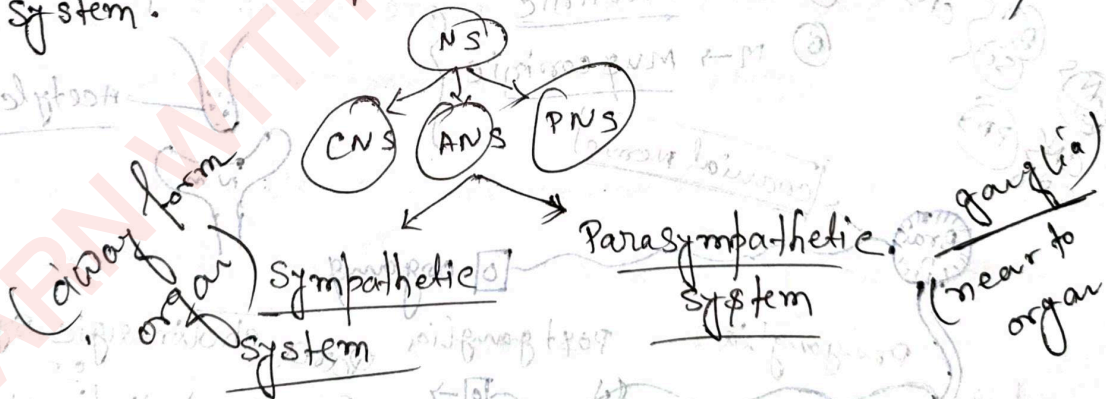 system.
NS
CNS
ANS
PNS
(away form
organ)
Sympathetic
system
Parasympathetic
system
ganglia)
(near to
organ
ARN WITH